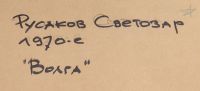 Русаков Светозар
1970-е
"Волга"